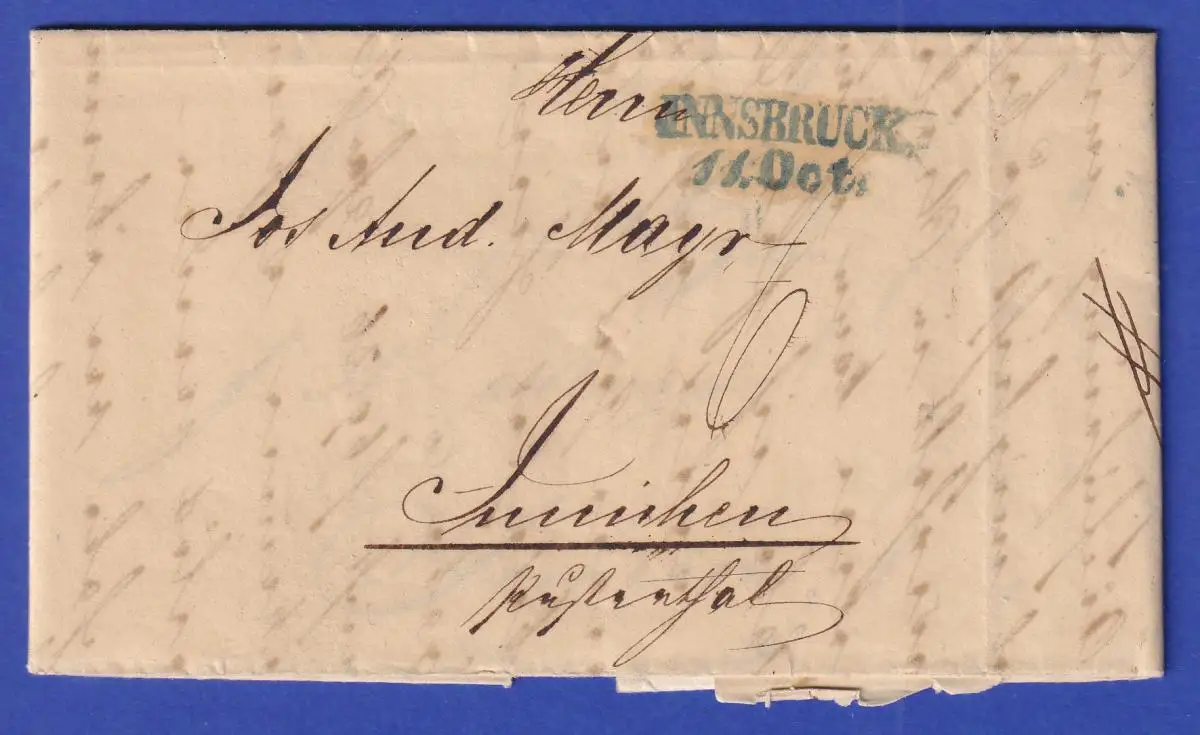 Herrn
INNSBRUCK.
11. Oct.
Jos And. Mayr
6
Innichen
Pusterthal